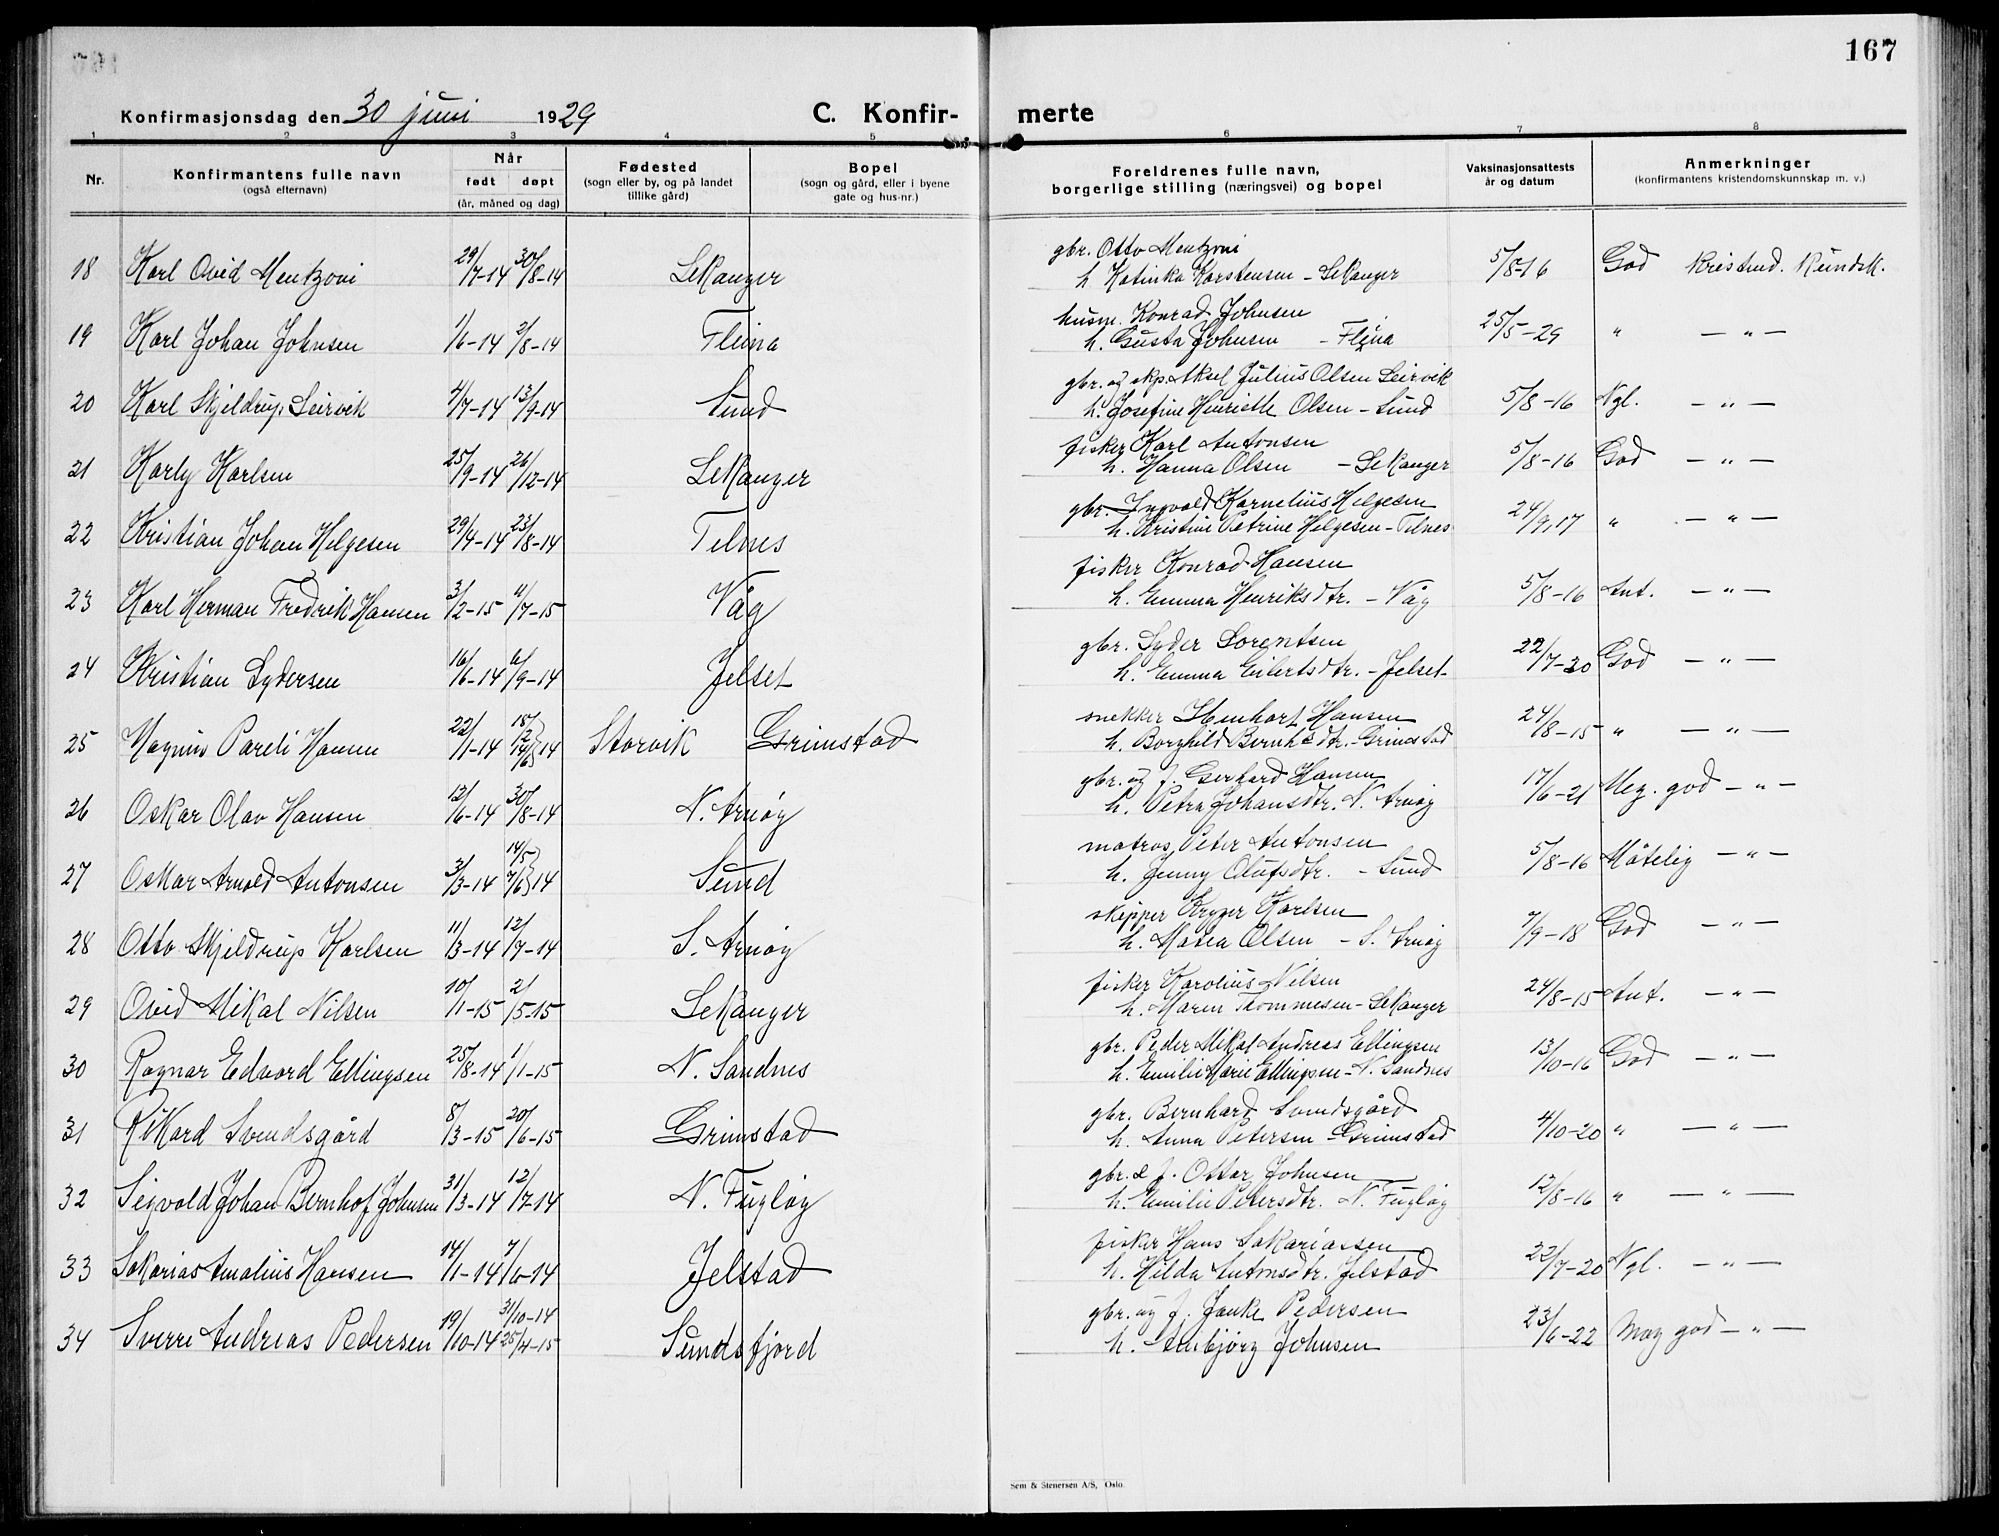 167
Konfirmasjonsdag den 30 juni 1929
C. Konfir- merte
1 2 3 4 5 6 7 8
Nr. Konfirmantens fulle navn (også efternavn) Når født døpt (år, måned og dag) Fødested (sogn eller by, og på landet tillike gård) Bopel (sogn og gård, eller i byene gate og hus-nr.) Foreldrenes fulle navn, borgerlige stilling (næringsvei) og bopel Vaksinasjonsattests år og datum Anmerkninger (konfirmantens kristendomskunnskap m. v.)
18 Karl Ovid Mentzoni 29/7-14 30/8-14 Lekanger gbr. Otto Mentzoni h. Katinka Karstensen - Lekanger 5/8-16 God kristend. kundsk.
19 Karl Johan Johnsen 1/6-14 2/8-14 Fleina husm. Konrad Johnsen h. Gusta Johnsen - Fleina 25/5-29 " - " -
20 Karl Skjeldrup Leirvik 4/7-14 13/9-14 Sund gbr. og skp. Aksel Julius Olsen Leirvik h. Josefine Henriette Olsen - Sund 5/8-16 Ngl. - " -
21 Karly Karlsen 25/9-14 26/12-14 Lekanger fisker Karl Antonsen h. Hanna Olsen - Lekanger 5/8-16 God - " -
22 Kristian Johan Helgesen 29/4-14 23/8-14 Telnes gbr. Ingvald Kornelius Helgesen h. Kristine Petrine Helgesen - Telnes 24/9,17 " - " -
23 Karl Herman Fredrik Hansen 3/2-15 11/7-15 Våg fisker Konrad Hansen h. Emma Henriksdtr. - Våg 5/8-16 Ant. - " -
24 Kristian Sydersen 16/6-14 6/9-14 Jelset gbr. Syder Lorentsen h. Emma Eilertsdtr. - Jelset 22/7-20 God - " -
25 Magnus Pareli Hansen 22/1-14 18/2 14/6}14 Storvik Grimstad snekker Ebenhart Hansen h. Borghild Bernh.dtr. - Grimstad 24/8-15 " - " -
26 Oskar Olav Hansen 12/6-14 30/8-14 N. Arnøy gbr. og f. Gerhard Hansen h. Petra Johansdtr. N. Arnøy 17/6-21 Meg. god - " -
27 Oskar Arnold Antonsen 3/3-14 14/5 7/6}14 Sund matros Peter Antonsen h. Jenny Olufsdtr. - Sund 5/8-16 Måtelig - " -
28 Otto Skjeldrup Karlsen 11/3-14 12/7-14 S. Arnøy skipper Kryger Karlsen h. Maria Olsen - S. Arnøy 7/9-18 God - " -
29 Ovid Mikal Nilsen 10/1-15 2/5-15 Lekanger fisker Karolius Nilsen h. Maren Tommesen - Lekanger 24/8-15 Ant. - " -
30 Ragnar Edvard Ellingsen 25/8-14 1/1-15 N. Sandnes gbr. Peder Mikal Andreas Ellingsen h. Emilie Marie Ellingsen - N. Sandnes 13/10-16 God - " -
31 Rikard Svendsgård 8/3-15 20/6-15 Grimstad gbr. Bernhard Svendsgård h. Anna Petersen - Grimstad 4/10-20 " - " -
32 Sigvald Johan Bernhof Johnsen 31/3-14 12/7-14 N. Fugløy gbr. & f. Ottar Johnsen h. Emilie Petersdtr. N. Fugløy 12/8-16 " - " -
33 Sakarias Amalius Hansen 14/1-14 7/6-14 Jelstad fisker Hans Sakariassen h. Hilda Antonsdtr. Jelstad 22/7-20 Ngl. - " -
34 Sverre Andreas Pedersen 19/10-14 31/10-14 25/4-15 Sundsfjord gbr. og f. Janke Pedersen h. Anbjørg Johnsen 23/6-22 Meg god - " -
Sem & Stenersen A/S, Oslo.